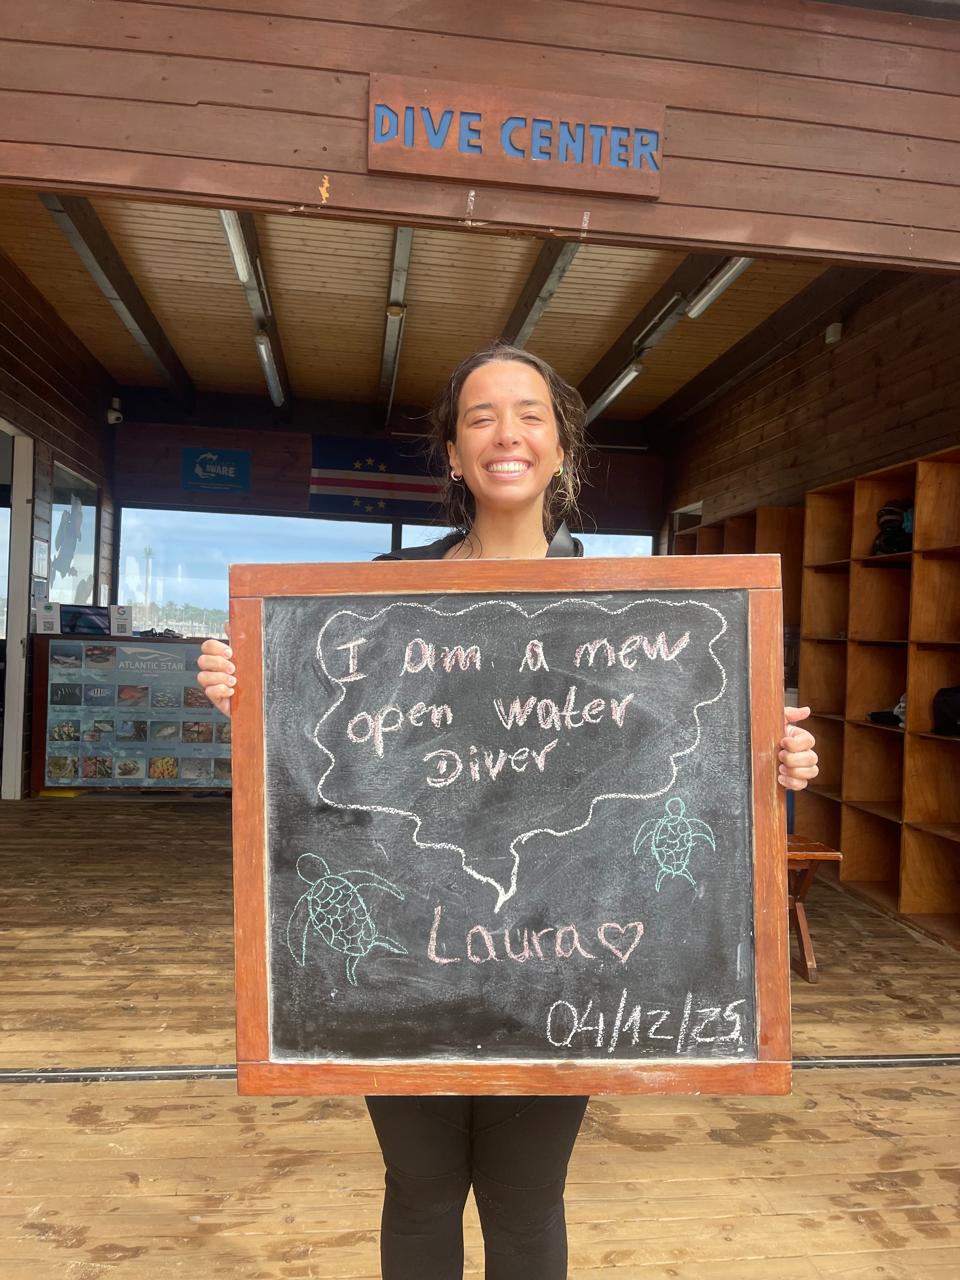 DIVE CENTER
AWARE
ATLANTIC STAR
I am a new
open water
Diver
Laura♡
04/12/25